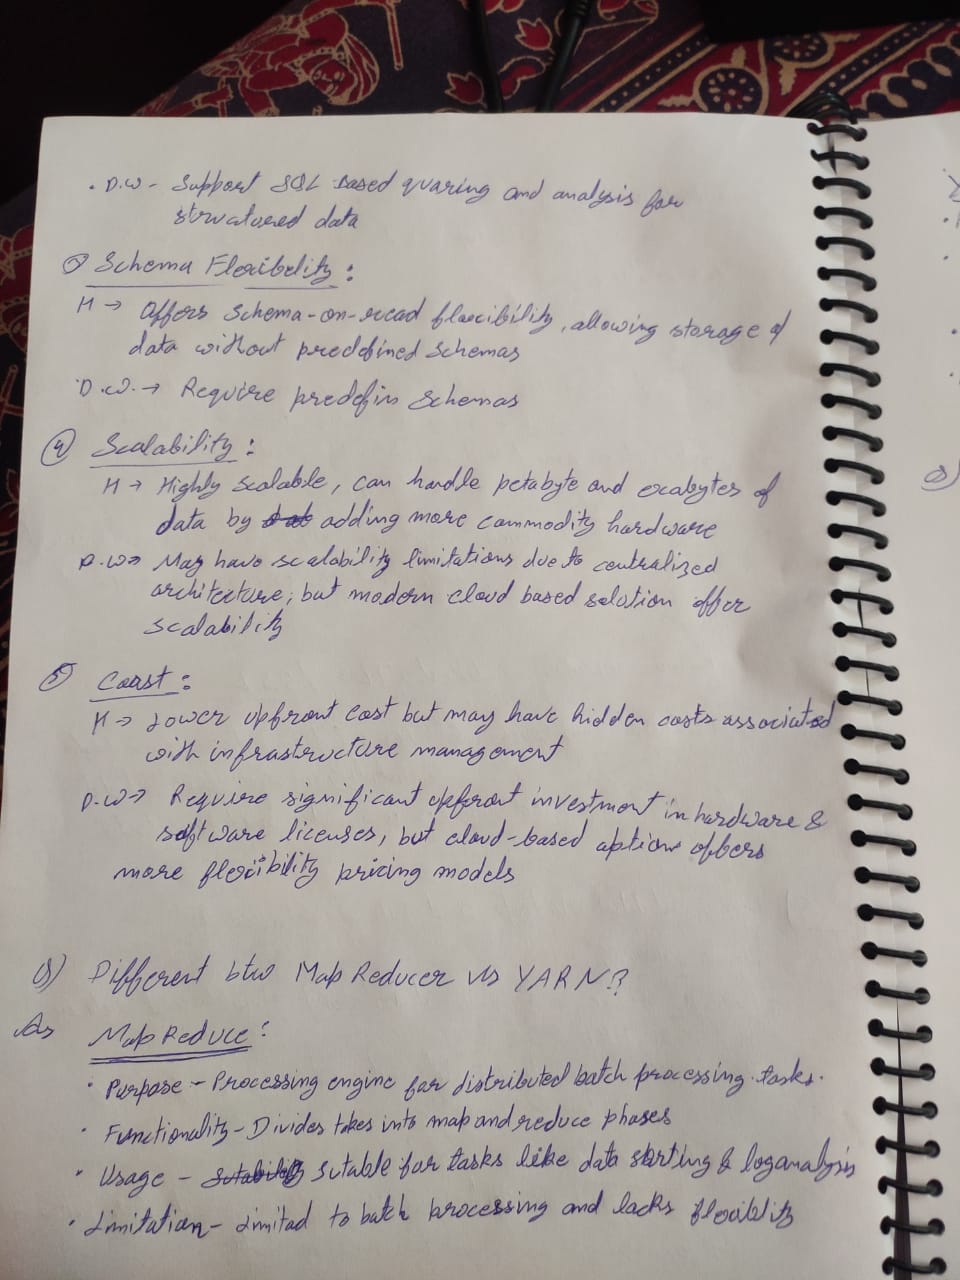 • D.W - Support SQL Based quaring and analysis for
structured data
③ Schema Flexibelity :
H → Offers Schema-on-read flexcibility, allowing storage of
data without predefined Schemas
D.W. → Require predefin Schemas
④ Scalability :
H → Highly Scalable, can handle petabyte and exabytes of
data by adding more commodity hardware
D.W → May have scalability limitations due to centralized
architecture, but modern cloud based solution offer
scalability
⑤ Coast :
H → Lower upfront cost but may have hidden costs associated
with infrastructure management
D.W → Require significant upfront investment in hardware &
software licenses, but cloud-based option offers
more flexibility pricing models
Q) Different btw Map Reducer vs YARN ?
As Map Reduce :
• Purpose - Processing engine for distributed batch processing tasks.
• Functionality - Divides takes into map and reduce phases
• Usage - Sutable for tasks like data storting & log analysis
• Limitation - Limited to batch processing and lacks flexiblity
Q)